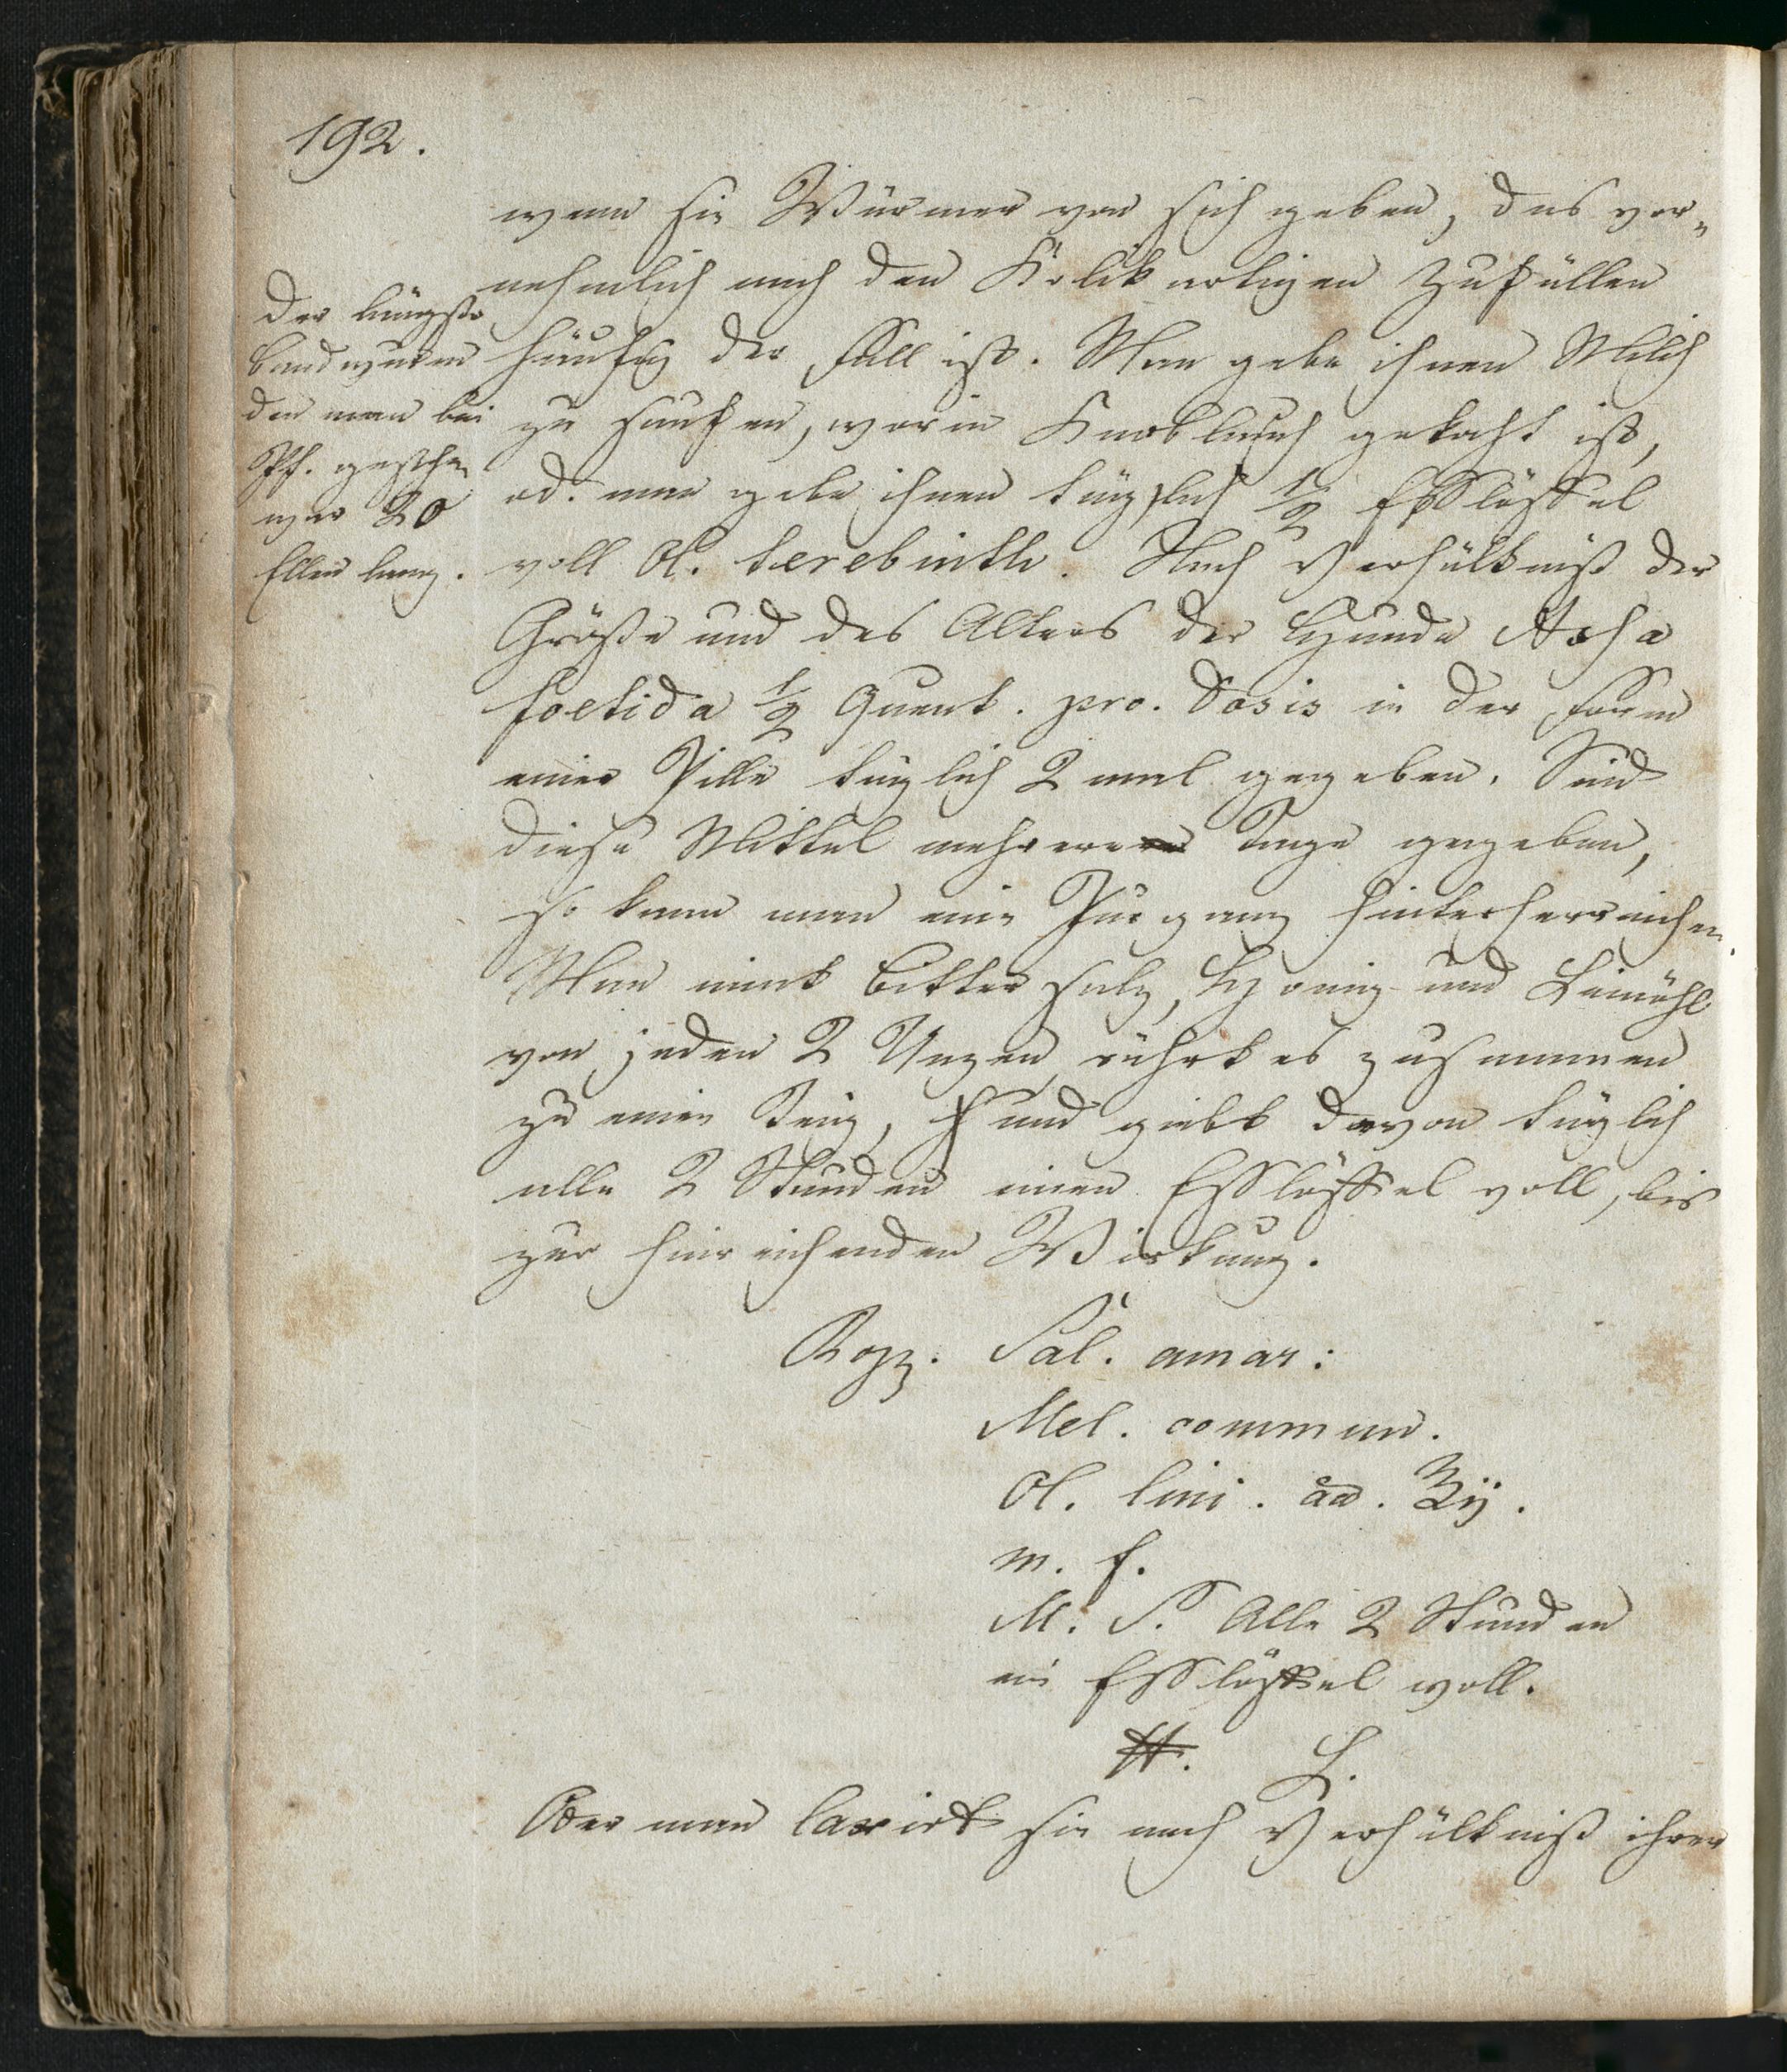 192.
wenn sie Würmer von sich geben, das vor„
nehmlich nach den Kolik artigen Zufällen
häufig der Fall ist. Man gebe ihnen Milch
zu saufen, worin Knoblauch gekocht ist,
od. man gebe ihnen täglich 1/2 Eßlöffel
voll Ol. terebinth. Nach Verhältniß der
Größe und des Alters der Hunde Assa
foetida 1/2 Quent. pro. Dosis in der Form
einer Pille täglich 2 mal gegeben. Sind
diese Mittel mehrere Tage gegeben,
so kann man eine Purganz hinterherreichen.
Man nimt Bittersalz, Honig und Leinöhl
von jeden 2 Unzen, rührt es zusammen
zu einen Teig, und giebt davon täglich
alle 2 Stunden einen Eßlöffel voll, bis
zur hinreichenden Wirkung.
Der längste
Bandwurm
den man bei
Pf. gesehen
war 20
Ellen lang.
Sal. amar:
Mel. commun.
Ol. lini. aa. ℥ij.
m. f.
M. S. Alle 2 Stunden
ein Eßlöffel voll.
H. L.
Oder man laxirt sie nach Verhältniß ihrer